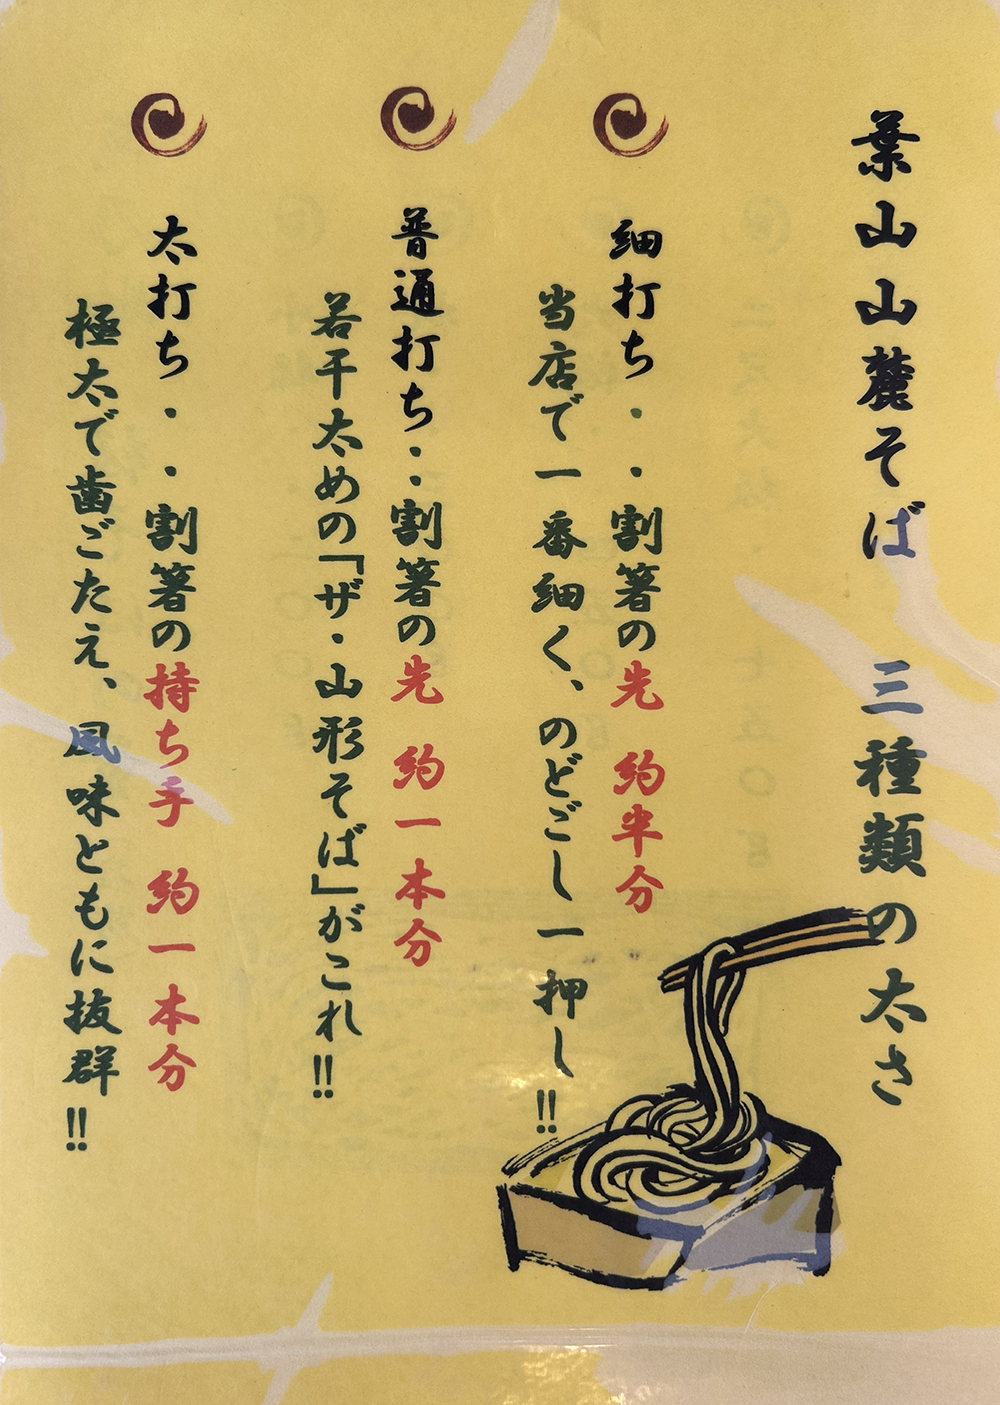 葉山山麓そば 三種類の太さ
細打ち・・割箸の先 約半分
当店で一番細く、のどごし一押し!!
普通打ち・・割箸の先 約一本分
若干太めの「ザ・山形そば」がこれ!!
太打ち・・割箸の持ち手 約一本分
極太で歯ごたえ、風味ともに抜群!!